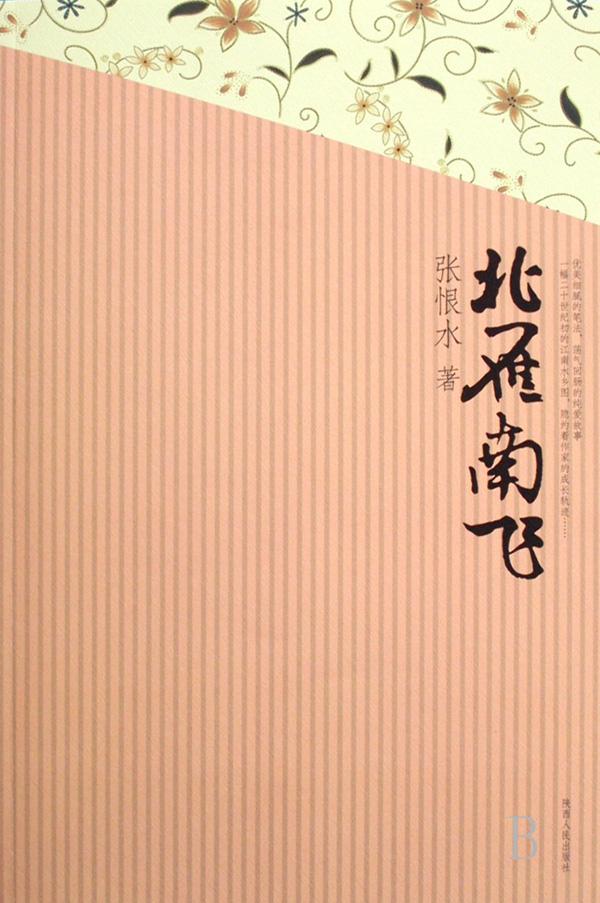 优美细腻的笔法，荡气回肠的纯爱故事
一幅二十世纪初的江南水乡图，隐约着作家的成长轨迹……
北雁南飞
张恨水 著
陕西人民出版社
B